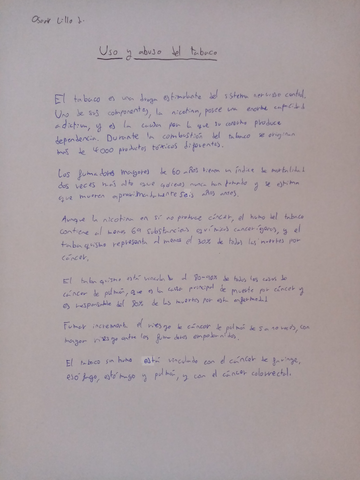 Uso y abuso del tabaco
El tabaco es una droga estimulante del sistema nervioso central.
Uno de sus componentes, la nicotina, posee una enorme capacidad
adictiva, y es la causa por la que su consumo produce
dependencia. Durante la combustión del tabaco se originan
más de 4000 productos tóxicos diferentes.
Los fumadores mayores de 60 años tienen un índice de mortalidad
dos veces más alto que quienes nunca han fumado y se estima
que mueren aproximadamente seis años antes.
Aunque la nicotina en sí no produce cáncer, el humo del tabaco
contiene al menos 69 substancias químicas cancerígenas, y el
tabaquismo representa al menos el 30% de todas las muertes por
cáncer.
El tabaquismo está vinculado al de todos los casos de
cáncer de pulmón, que es la causa principal de muerte por cáncer y
es responsable del 80% de las muertes por esta enfermedad
Fumar incrementa el riesgo de cáncer de pulmón de 5 a veces, con
mayor riesgo entre los fumadores empedernidos.
El tabaco sin humo está vinculado con el cáncer de faringe,
esófago, estómago y pulmón, y con el cáncer colorrectal.